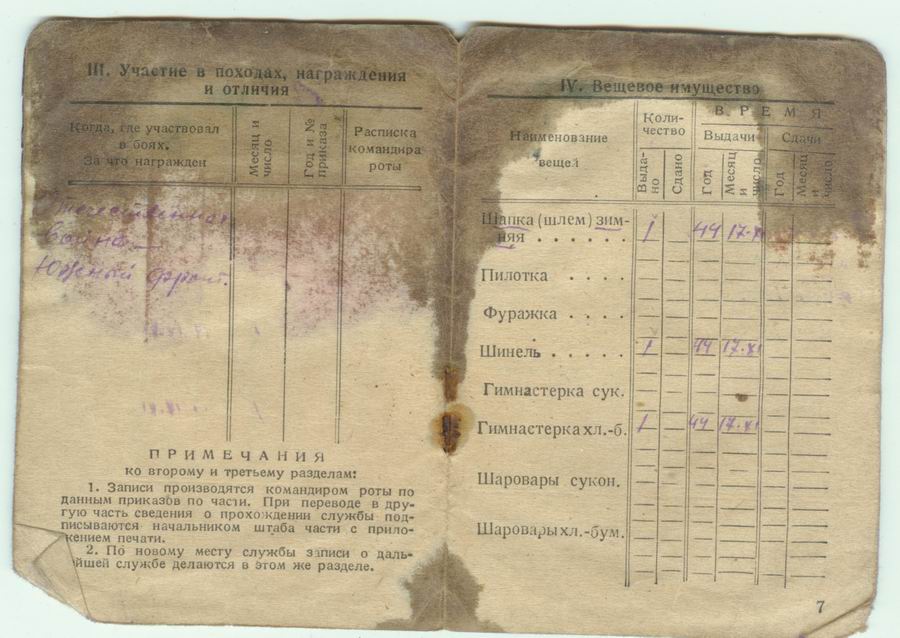 III. Участие в походах, награждения
и отличия
Когда, где участвовал
в боях.
За что награжден
Месяц и
число
Год и №
приказа
Расписка
командира
роты
Отечественная
война —
Южный фронт.
ПРИМЕЧАНИЯ
ко второму и третьему разделам:
1. Записи производятся командиром роты по
данным приказов по части. При переводе в дру-
гую часть сведения о прохождении службы под-
писываются начальником штаба части с прило-
жением печати.
2. По новому месту службы записи о даль-
нейшей службе делаются в этом же разделе.
IV. Вещевое имущество
Наименование
вещей
Коли-
чество
ВРЕМЯ
Выдачи
Сдачи
Выда-
но
Сдано
Год
Месяц
и
число
Год
Месяц
и
число
Шапка (шлем) зим-
няя . . . . . . 1 44 17.XI
Пилотка . . . .
Фуражка . . . .
Шинель . . . . . 1 44 17.XI
Гимнастерка сук.
Гимнастерка хл.-б. 1 44 17.XI
Шаровары сукон.
Шаровары хл.-бум.
7